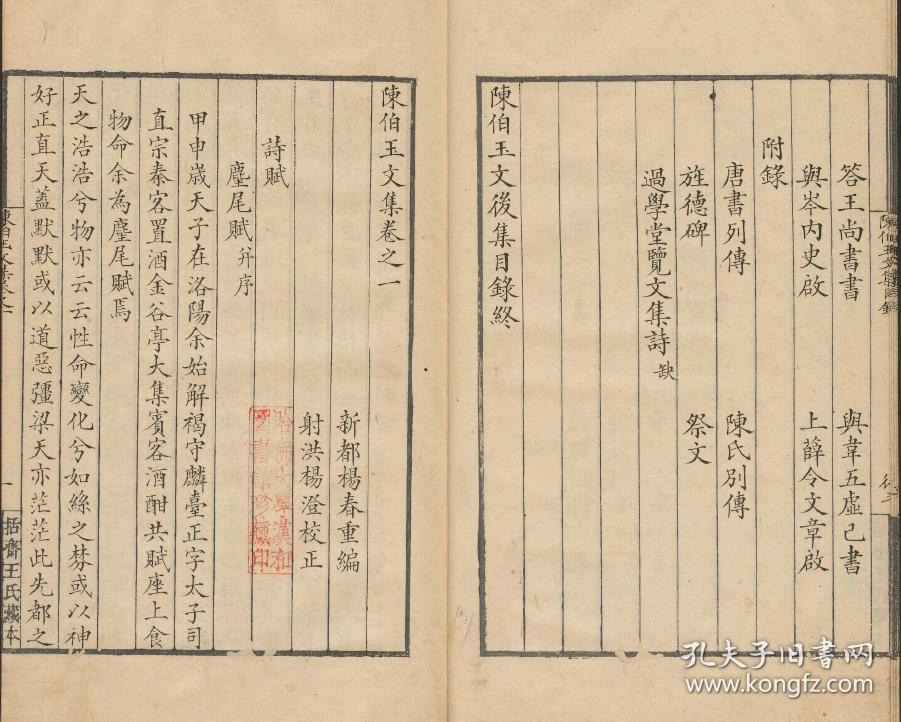 答王尚書書 與韋五虛己書
與岑內史啟 上薛令文章啟
附錄
唐書列傳 陳氏別傳
旌德碑 祭文
過學堂覽文集詩 缺
陳伯玉文後集目錄終
陳伯玉文集卷之一
新都楊春重編
射洪楊澄校正
詩賦
麈尾賦 并序
甲申歲天子在洛陽余始解褐守麟臺正字太子司
直宗秦客置酒金谷亭大集賓客酒酣共賦座上食
物命余為麈尾賦焉
天之浩浩兮物亦云云性命變化兮如絲之棼或以神
好正直天蓋默默或以道惡彊梁天亦茫茫此先都之
陳伯玉文集卷之一
一
括齋王氏藏本
哈佛大學漢和
圖書館珍藏印
孔夫子旧书网
www.kongfz.com